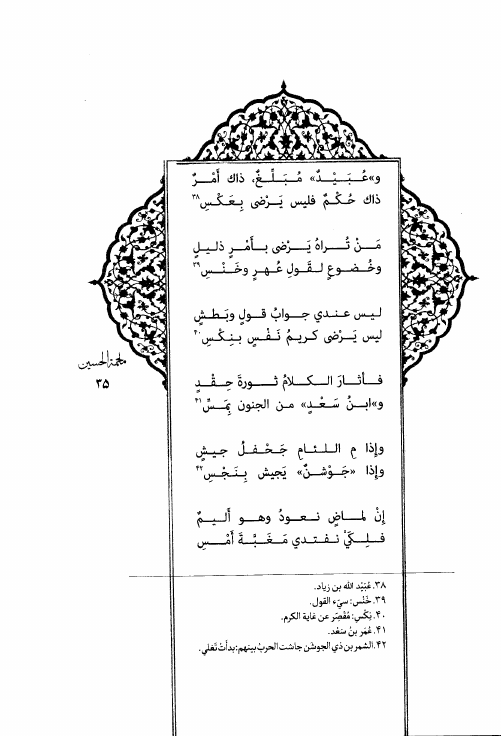 و«عُبَيْدٌ» مُبَلِّغٌ، ذاك أَمْرٌ
ذاك حُكْمٌ فليس يَرْضى بِعَكْسِ٣٨
مَنْ تُراهُ يَرْضى بأَمْرٍ ذليلٍ
وخُضوعٍ لقَولِ عُهرٍ وخَنْسِ٣٩
ليس عندي جوابُ قولٍ وبَطشٍ
ليس يَرْضى كريمُ نَفْسٍ بنِكْسِ٤٠
فأثارَ الكلامُ ثورةَ حِقْدٍ
و«ابنُ سَعْدٍ» من الجنون بمَسِّ٤١
وإذا مِ اللئامِ جَحْفلُ جيشٍ
وإذا «جَوْشنٌ» يَجيش بِنَجْسِ٤٢
إنْ لماضٍ نعودُ وهو أَليمٌ
فلِكَيْ نفتدي مَغَبَّةَ أَمْسِ
ملحمة الحسين
٣٥
٣٨. عُبَيْد الله بن زياد.
٣٩. خَنْس: سيّء القول.
٤٠. نِكْس: مُقصِّر عن غاية الكرم.
٤١. عُمَر بنُ سَعْد.
٤٢. الشمر بن ذي الجوشَن جاشت الحربُ بينهم: بدأتْ تَغلي.